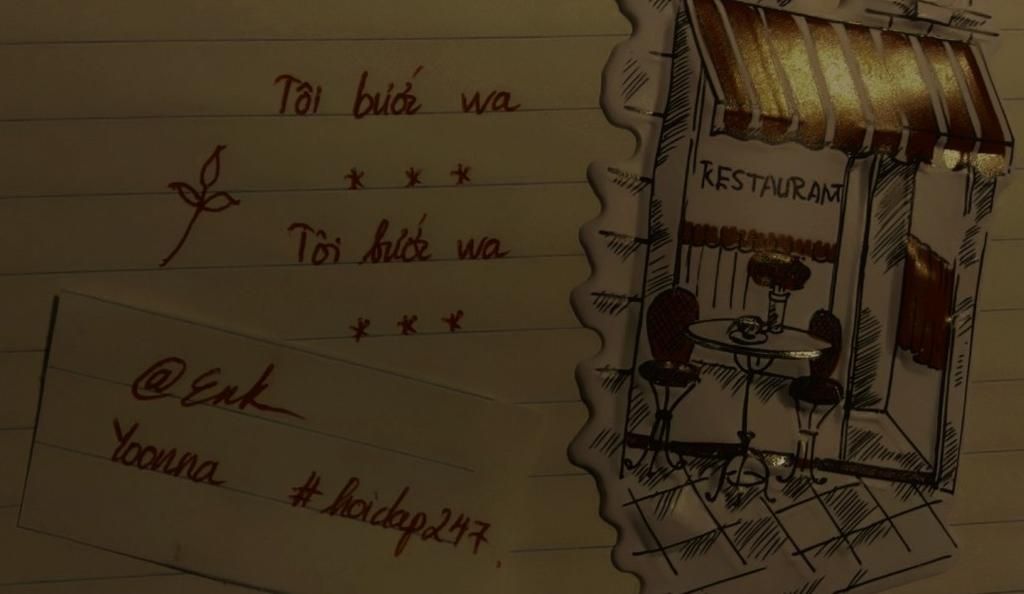 Tôi bước wa
* * *
Tôi bước wa
* * *
@Enk
Yoonna
#hoidap247
RESTAURANT